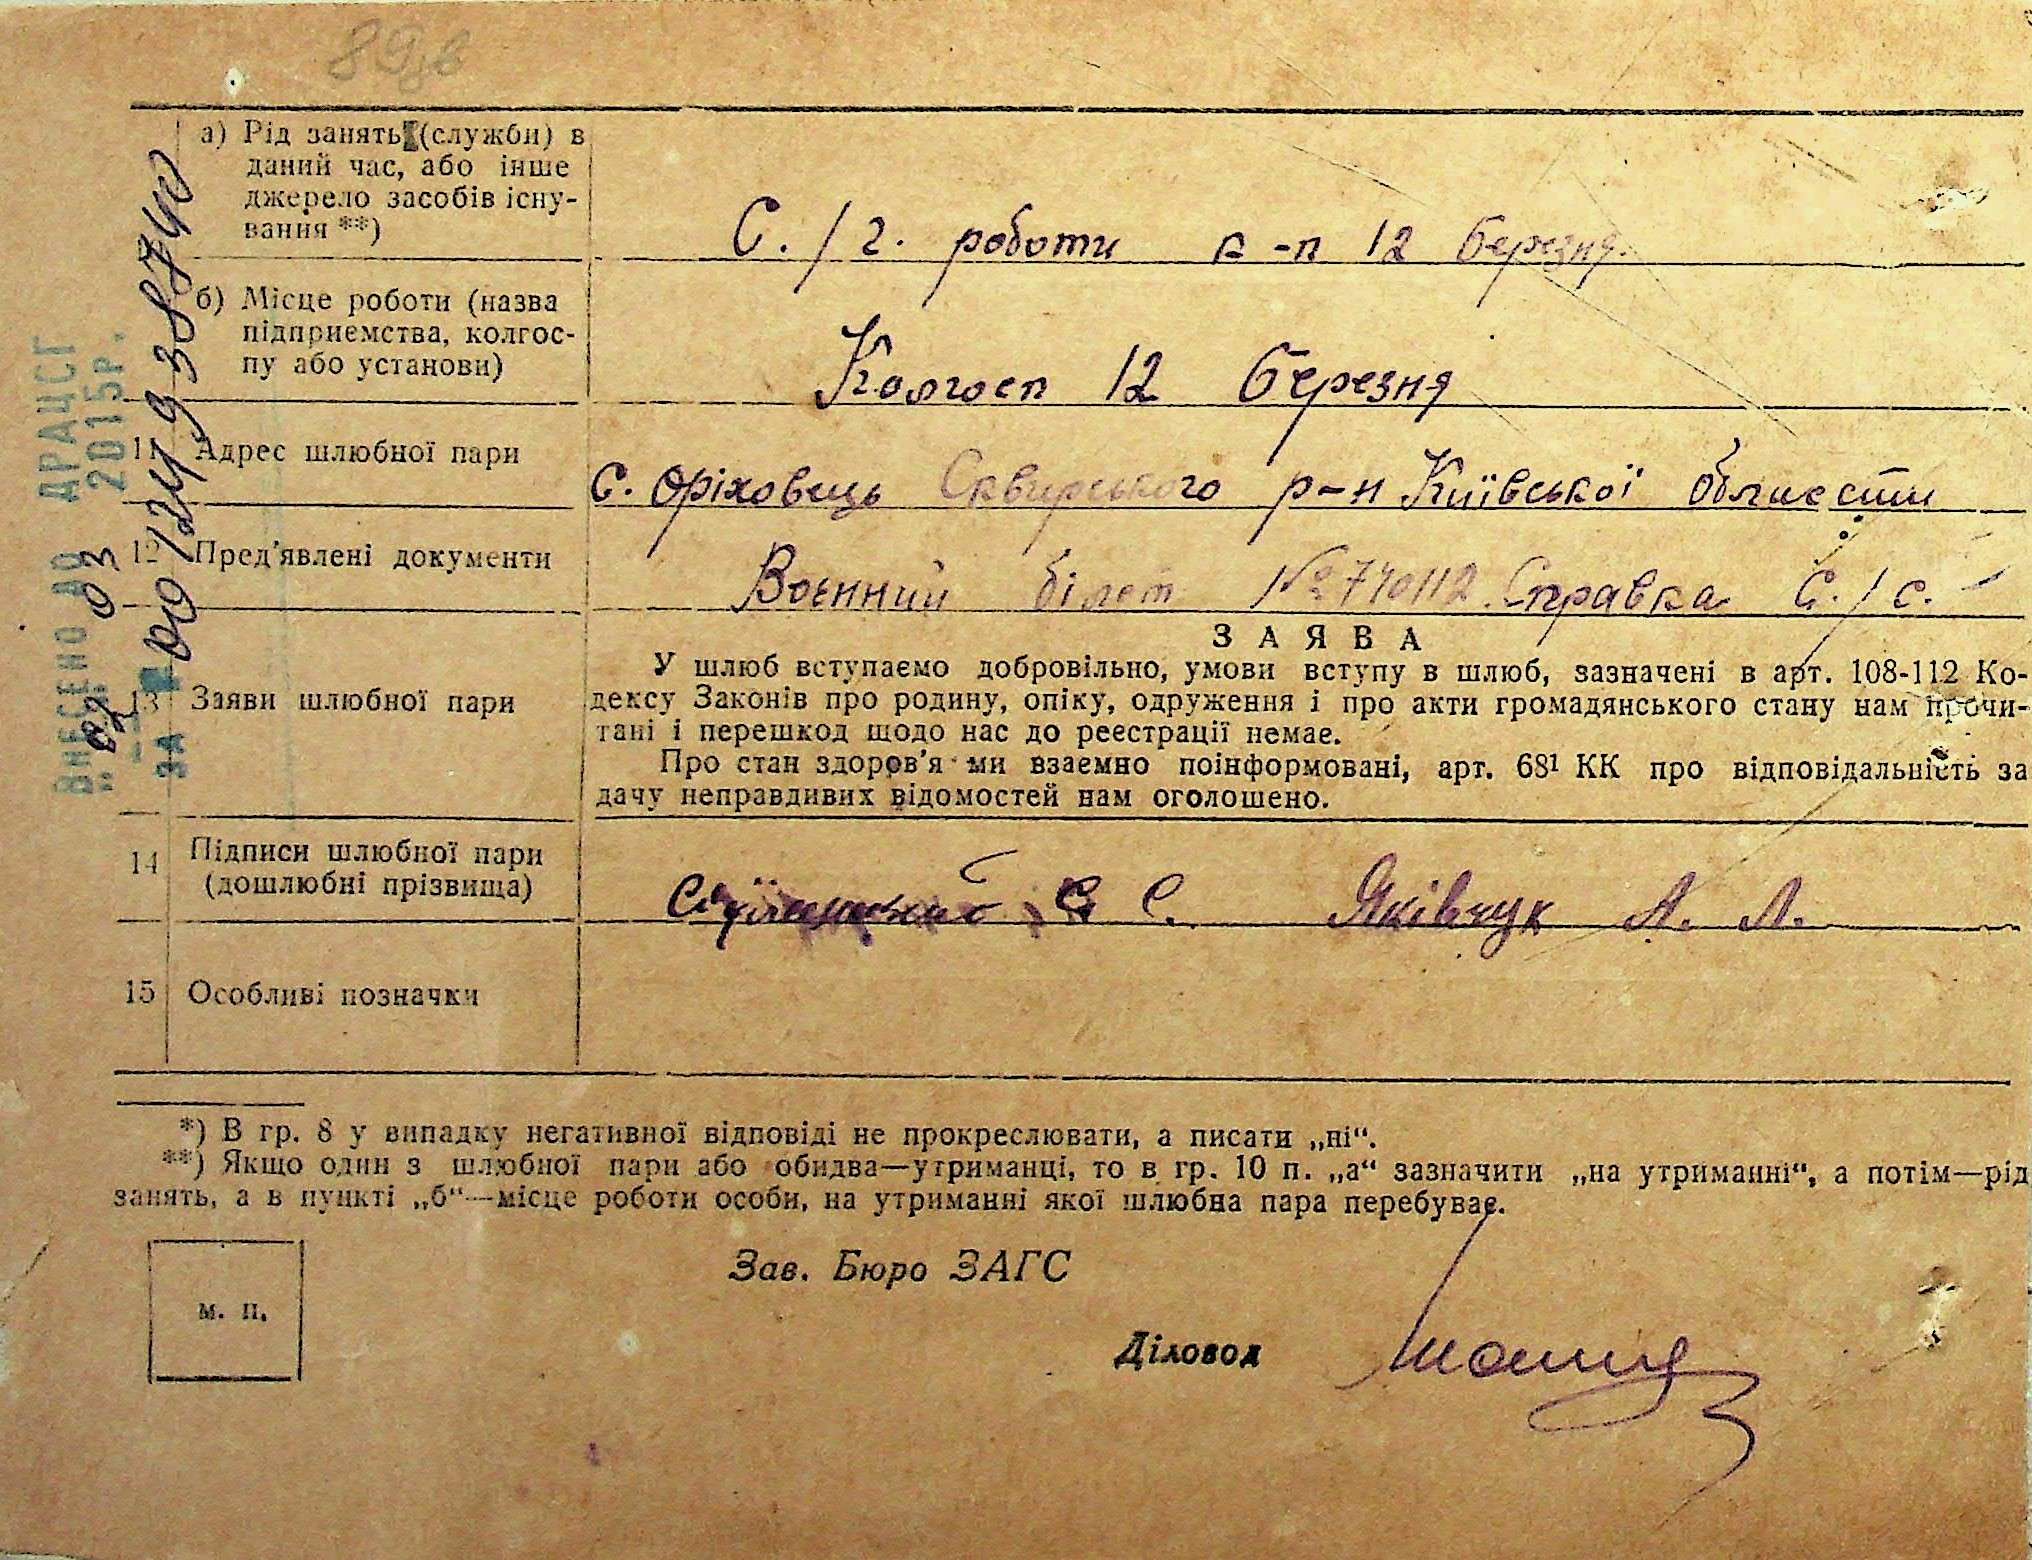 а) Рід занять (служби) в
даний час, або інше
джерело засобів існу-
вання **)
С./г. роботи к-п 12 березня.
б) Місце роботи (назва
підприємства, колгос-
пу або установи)
Колгосп 12 Березня
11 Адрес шлюбної пари
с. Оріховець Сквирського р-н Київської області
12 Пред'явлені документи
Воєнний білет №740112 Справка С./с.
13 Заяви шлюбної пари
ЗАЯВА
У шлюб вступаємо добровільно, умови вступу в шлюб, зазначені в арт. 108-112 Ко-
дексу Законів про родину, опіку, одруження і про акти громадянського стану нам прочи-
тані і перешкод щодо нас до реестрації немає.
Про стан здоров'я ми взаємно поінформовані, арт. 68¹ КК про відповідальність за
дачу неправдивих відомостей нам оголошено.
14 Підписи шлюбної пари
(дошлюбні прізвища)
С. Яківчук А. Л.
15 Особливі позначки
*) В гр. 8 у випадку негативної відповіді не прокреслювати, а писати „ні“.
**) Якщо один з шлюбної пари або обидва—утриманці, то в гр. 10 п. „а“ зазначити „на утриманні“, а потім—рід
занять, а в пункті „б“—місце роботи особи, на утриманні якої шлюбна пара перебуває.
Зав. Бюро ЗАГС
м. п.
Діловод
ВНЕСЕНО ДО ДРАЦСГ
"02" 03 2015р.
ЗА № 00124938740